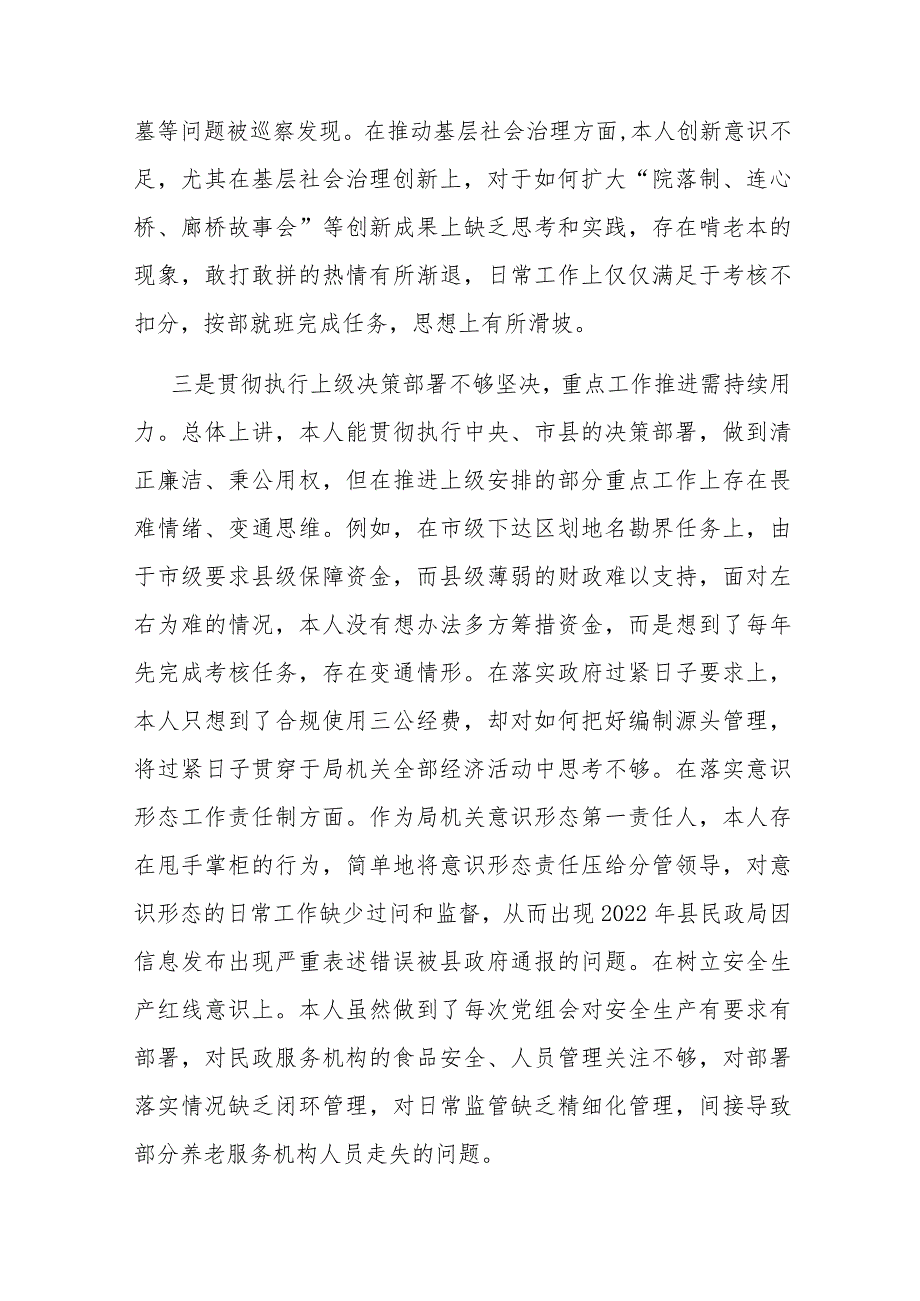 墓等问题被巡察发现。在推动基层社会治理方面,本人创新意识不
足，尤其在基层社会治理创新上，对于如何扩大“院落制、连心
桥、廊桥故事会”等创新成果上缺乏思考和实践，存在啃老本的
现象，敢打敢拼的热情有所渐退，日常工作上仅仅满足于考核不
扣分，按部就班完成任务，思想上有所滑坡。
三是贯彻执行上级决策部署不够坚决，重点工作推进需持续用
力。总体上讲，本人能贯彻执行中央、市县的决策部署，做到清
正廉洁、秉公用权，但在推进上级安排的部分重点工作上存在畏
难情绪、变通思维。例如，在市级下达区划地名勘界任务上，由
于市级要求县级保障资金，而县级薄弱的财政难以支持，面对左
右为难的情况，本人没有想办法多方筹措资金，而是想到了每年
先完成考核任务，存在变通情形。在落实政府过紧日子要求上，
本人只想到了合规使用三公经费，却对如何把好编制源头管理，
将过紧日子贯穿于局机关全部经济活动中思考不够。在落实意识
形态工作责任制方面。作为局机关意识形态第一责任人，本人存
在甩手掌柜的行为，简单地将意识形态责任压给分管领导，对意
识形态的日常工作缺少过问和监督，从而出现 2022 年县民政局因
信息发布出现严重表述错误被县政府通报的问题。在树立安全生
产红线意识上。本人虽然做到了每次党组会对安全生产有要求有
部署，对民政服务机构的食品安全、人员管理关注不够，对部署
落实情况缺乏闭环管理，对日常监管缺乏精细化管理，间接导致
部分养老服务机构人员走失的问题。